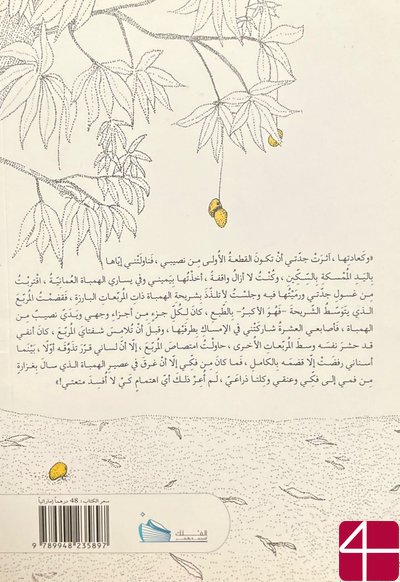 «وكعادتِها، آثرَتْ جدّتي أنْ تكونَ القطعةُ الأولى مِن نصيبي، فناولَتْني إيّاها
باليدِ المُمْسِكةِ بالسكّينِ، وكُنْتُ لا أزالُ واقفةً، أخذْتُها بيَميني وفي يساري الهمباة العُمانيّة، اقتربْتُ
مِن غسولِ جدّتي ورميْتُها فيه وجلسْتُ لأتلذّذَ بشريحةِ الهمباة ذاتِ المُربّعاتِ البارزة، فقضمْتُ المُربّعَ
الذي يتوسّطُ الشّريحةَ –فهُوَ الأكبرُ- بالطّبعِ، كانَ لكُلِّ جزءٍ مِن أجزاءِ وجهي ويَدَيَّ نصيبٌ مِن
الهمباة، فأصابعي العشرةُ شارَكَتْني في الإمساكِ بطرفَيْها، وقبلَ أنْ تُلامِسَ شفتايَ المُربّعَ، كانَ أنفي
قد حشرَ نفسَه وسطَ المُربّعاتِ الأُخرى، حاولْتُ امتصاصَ المُربّعِ، إلّا أنّ لساني قرّرَ تذوّقَه أوّلًا، بيْنَما
أسناني رفضَتْ إلّا قضمَه بالكاملِ، فما كانَ مِن فكّي إلّا أنْ غرقَ في عصيرِ الهمباة الذي سالَ بغزارةٍ
مِن فمي إلى فكّي وعنقي وكلتا ذراعَيَّ، لَم أعِرْ ذلكَ أيَّ اهتمامٍ كَيْ لا أُفسِدَ متعتي!»
سعر الكتاب: 48 درهماً إماراتياً
الفلك
9 789948 235897